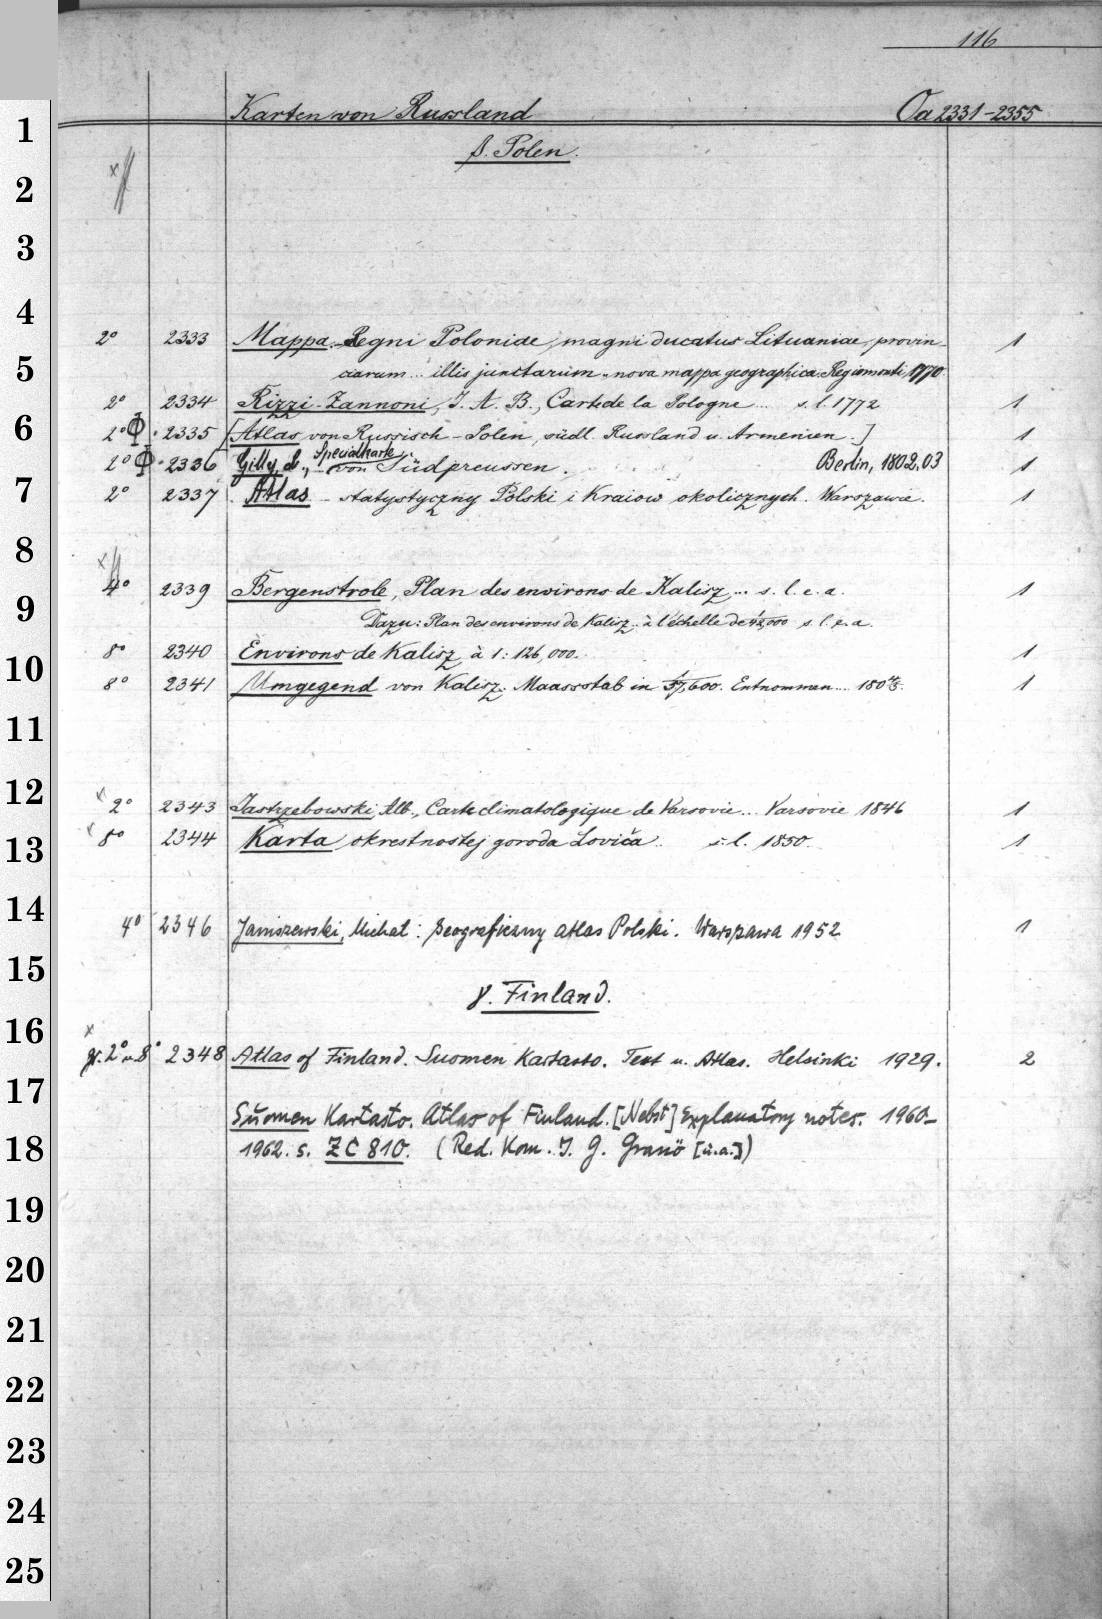 116
Karten von Russland Oa 2331-2355
β. Polen.
2° 2333 Mappa Regni Poloniae, magni ducatus Lituaniae, provin-
ciarum... illis junctarum.. nova mappa geographica. Regiomonti, 1770. 1
2° 2334 Rizzi-Zannoni, J. A. B., Carte de la Pologne... s. l. 1772 1
2° Φ 2335 [Atlas von Russisch-Polen, südl. Russland u. Armenien.] 1
2° Φ 2336 Gilly, D., Specialkarte von Südpreussen. Berlin, 1802.03 1
2° 2337 Atlas statystyczny Polski i Kraiow okolicznych. Warszawie. 1
4° 2339 Bergenstrole, Plan des environs de Kalisz... s. l. e. a. 1
Dazu: Plan des environs de Kalisz.. à l'échelle de 1/42,000 s. l. e. a.
8° 2340 Environs de Kalisz à 1: 126,000. 1
8° 2341 Umgegend von Kalisz. Maassstab in 1/57,600. Entnommen.... 1
x 2° 2343 Jastrzebowski, Alb., Carte climatologique de Varsovie... Varsovie 1846 1
x 8° 2344 Karta okrestnostej goroda Loviča. s. l. 1850. 1
4° 2346 Janiszewski, Michał: Geograficzny atlas Polski. Warszawa 1952 1
γ. Finland.
x
gr. 2° u. 8° 2348 Atlas of Finland. Suomen Kartasto. Text u. Atlas. Helsinki 1929. 2
Suomen Kartasto. Atlas of Finland. [Nebst] Explanatory notes. 1960-
1962. s. ZC 810. (Red. Kom. J. G. Granö [u.a.])
1
2
3
4
5
6
7
8
9
10
11
12
13
14
15
16
17
18
19
20
21
22
23
24
25